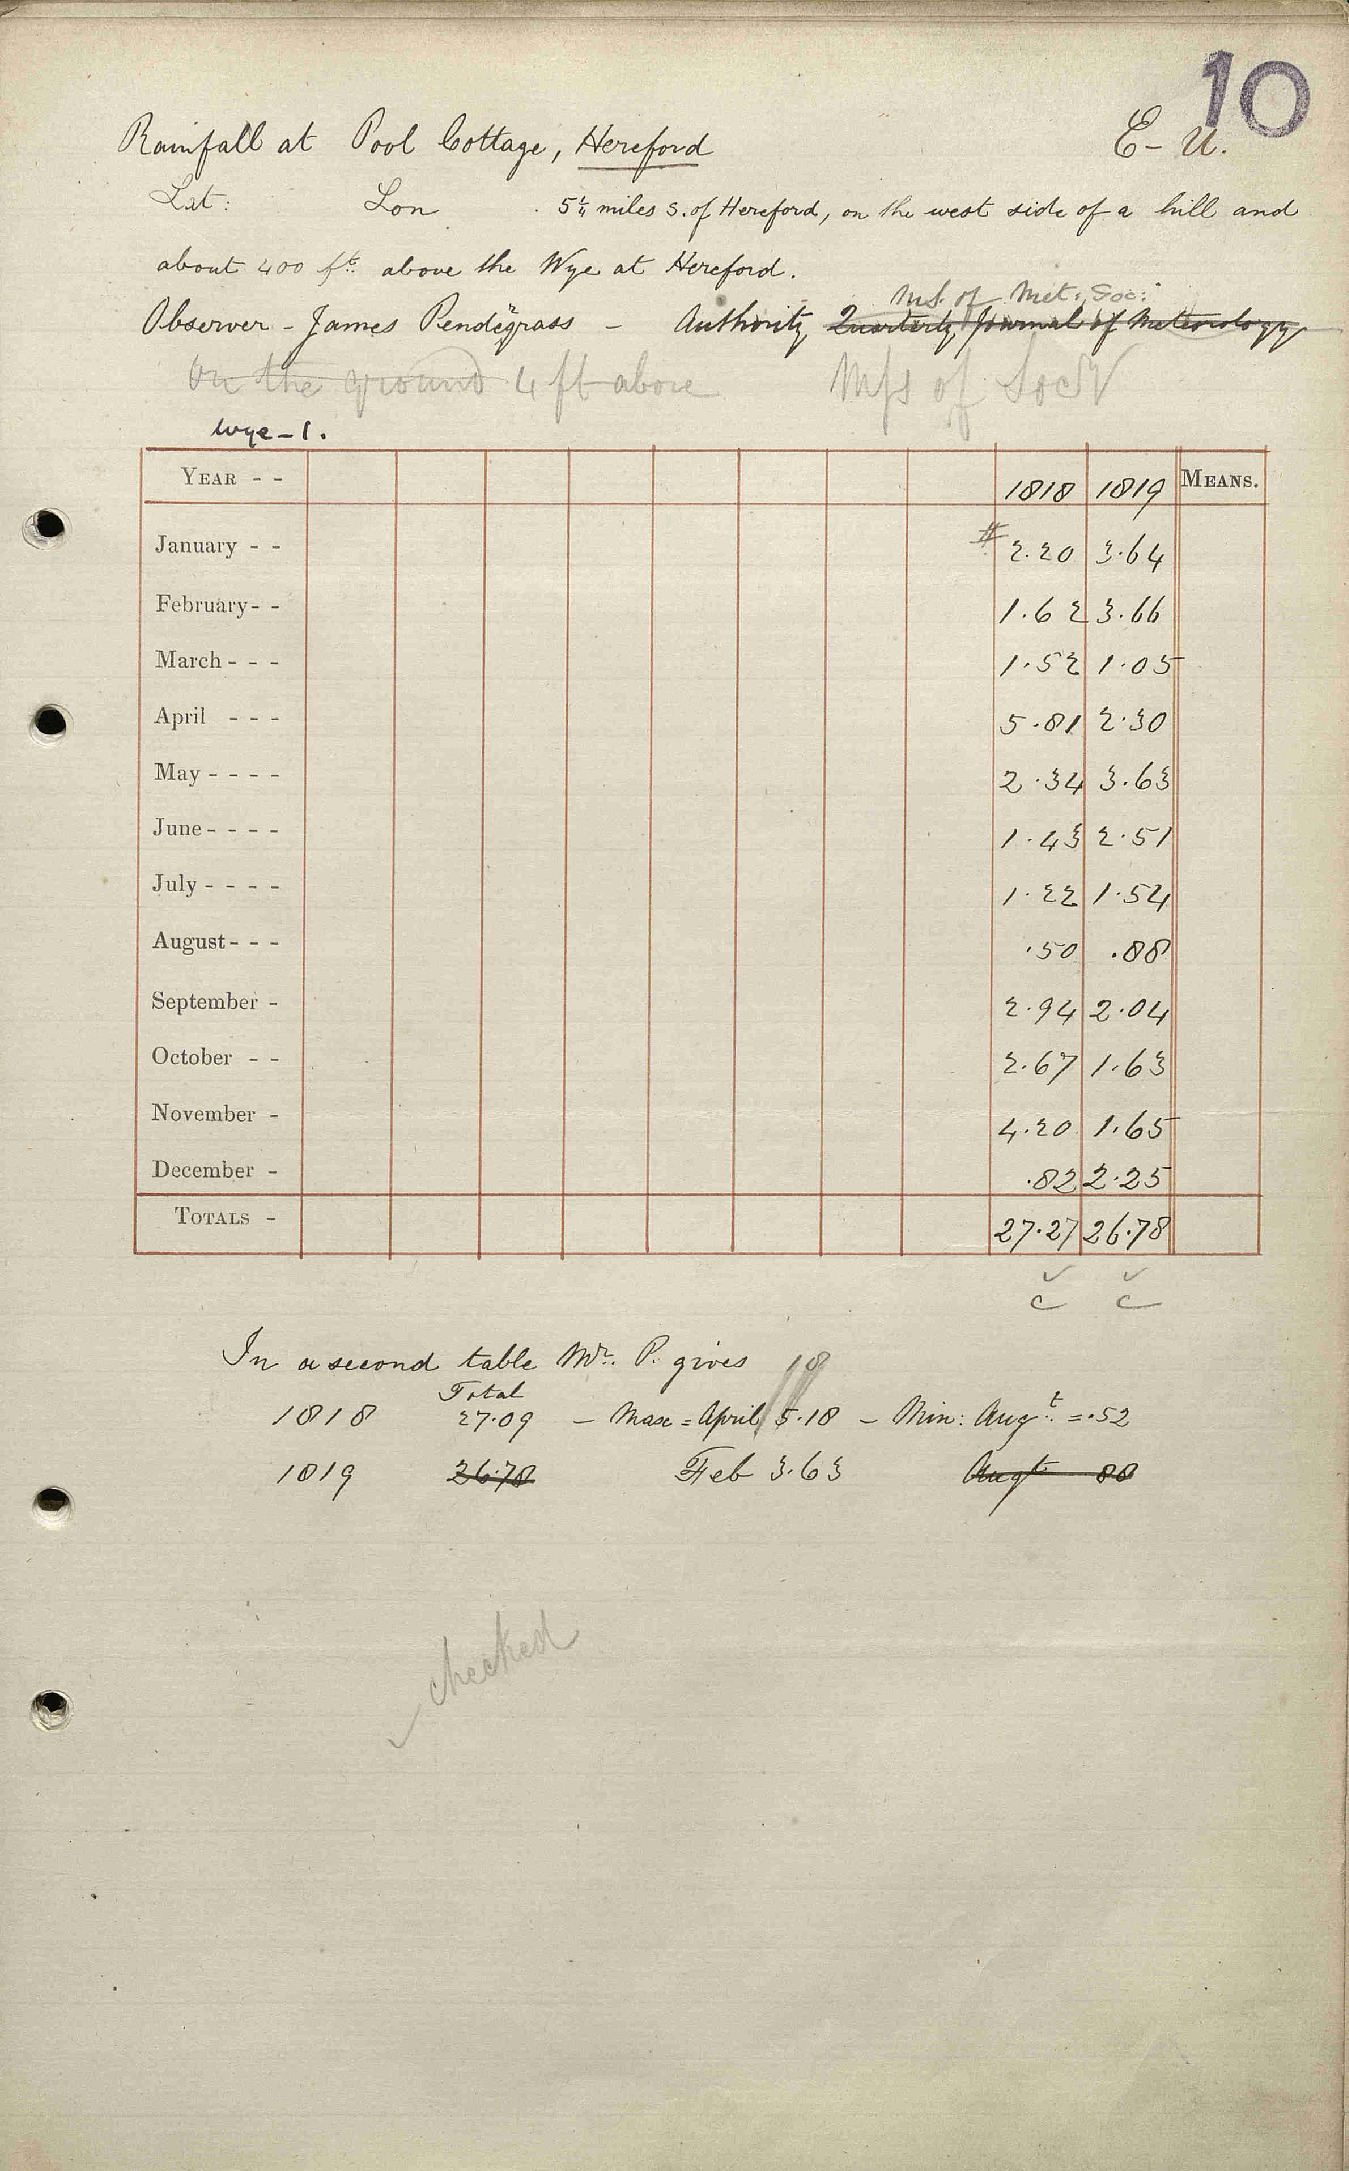 10
Rainfall at Pool Cottage, Hereford E - U.
Lat: Lon . 5¼ miles S. of Hereford, on the west side of a hill and
about 400 ft. above the Wye at Hereford.
MS. of Met: Soc:
Observer - James Pendegrass - Authority Quarterly Journal of Meteorology
On the ground 4 ft above Mss of Socy
Wye - 1.
YEAR - - 1818 1819 MEANS.
January - - # 2.20 3.64
February - - 1.62 3.66
March - - - 1.52 1.05
April - - - 5.81 2.30
May - - - - 2.34 3.63
June - - - - 1.43 2.51
July - - - - 1.22 1.54
August - - - .50 .88
September - 2.94 2.04
October - - 2.67 1.63
November - 4.20 1.65
December - .82 2.25
TOTALS - 27.27 26.78
✓ ✓
c c
In a second table Mr. P. gives 18
Total
1818 27.09 - Max = April 5.18 - Min: Augt. = .52
1819 26.78 Feb 3.63 Augt 88
✓ checked